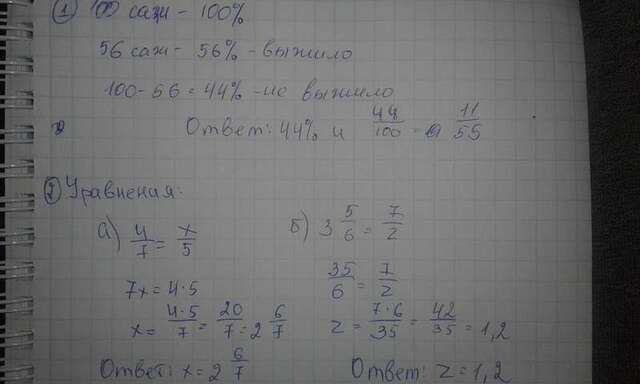 ① 100 сажи - 100%
56 сажи - 56% - выжило
100-56 = 44% - не выжило
Ответ: 44% и 44/100 = 11/55
② Уравнения:
а) 4/7 = x/5
7x = 4·5
x = 4·5/7 = 20/7 = 2 6/7
Ответ: x = 2 6/7
б) 3 5/6 = 7/z
35/6 = 7/z
z = 7·6/35 = 42/35 = 1,2
Ответ: z = 1,2